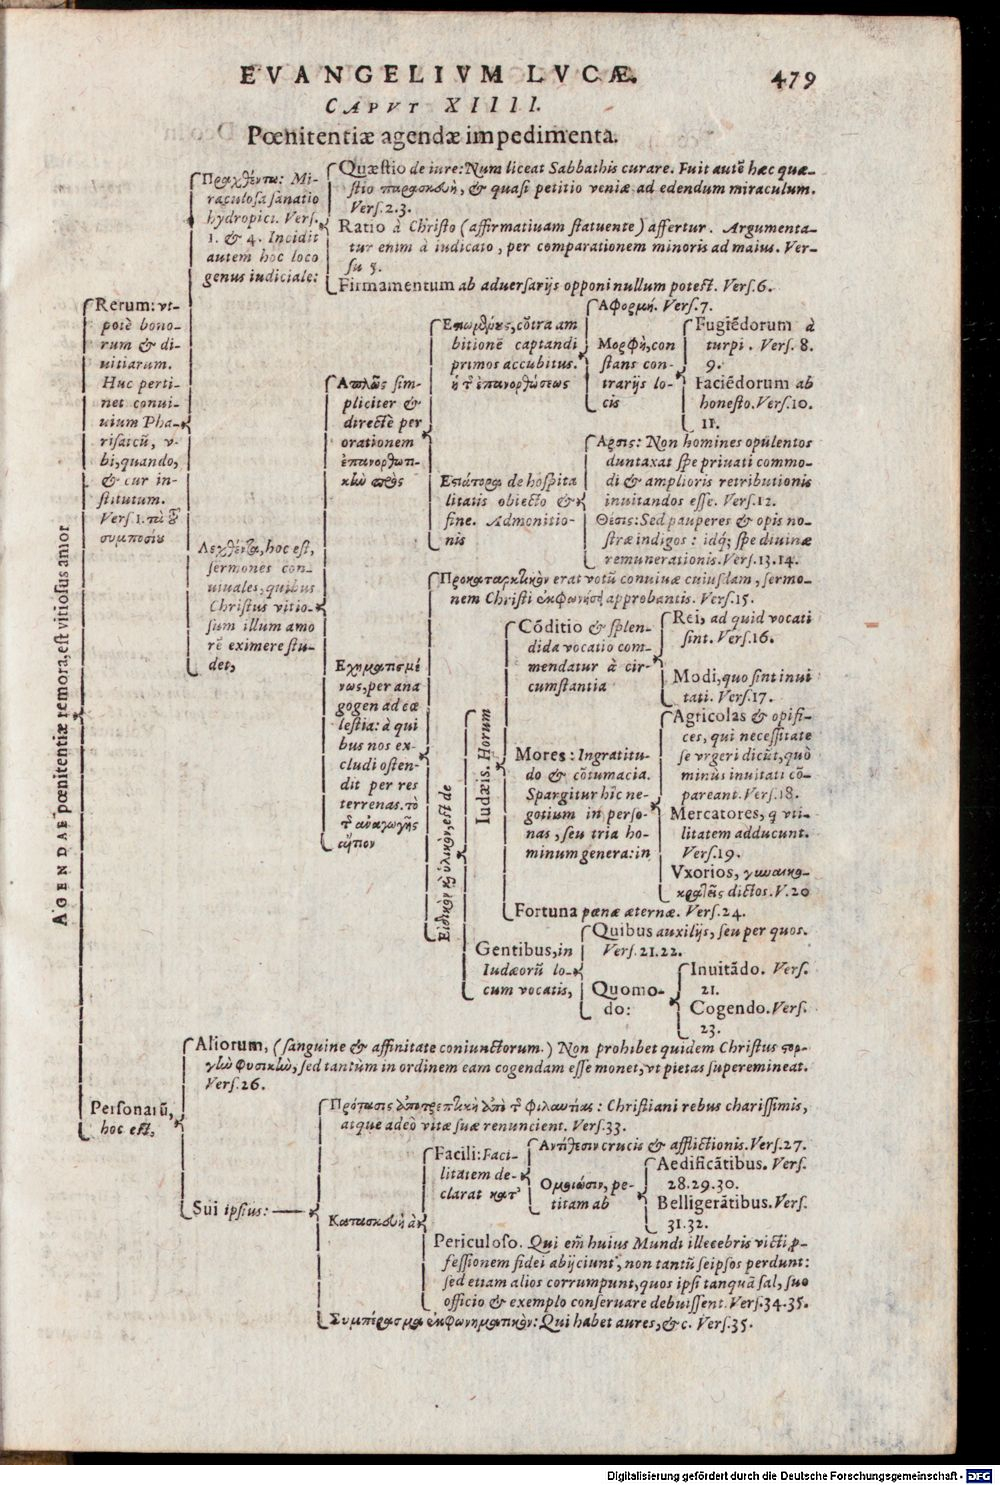 EVANGELIVM LVCÆ.
479
CAPVT XIIII.
Pœnitentiæ agendæ impedimenta.
AGENDAE pœnitentiæ remora, est vitiosus amor
Rerum: vt-
potè bono-
rum & di-
uitiarum.
Huc perti-
net conui-
uium Pha-
risaicũ, v-
bi, quando,
& cur in-
stitutum.
Vers. 1.
συμποσίου
Πραχθέντα: Mi-
raculosa sanatio
hydropici. Vers.
1. & 4. Incidit
autem hoc loco
genus iudiciale:
Quæstio de iure: Num liceat Sabbathis curare. Fuit autẽ hæc quæ-
stio παρασκευὴ, & quasi petitio veniæ ad edendum miraculum.
Vers. 2.3.
Ratio à Christo (affirmatiuam statuente) affertur. Argumenta-
tur enim à iudicato, per comparationem minoris ad maius. Ver-
su 5.
Firmamentum ab aduersarijs opponi nullum potest. Vers. 6.
Λεχθέντα, hoc est,
sermones con-
uiuales, quibus
Christus vitio-
sum illum amo
rẽ eximere stu-
det,
Απλῶς sim-
pliciter &
directè per
orationem
ἐπανορθωτι-
κὴν πρὸς
cõtra am
bitionẽ captandi
primos accubitus.
ἢ τ ἐπανορθώσεως
Αφορμή. Vers. 7.
Μορφὴ, con
stans con-
trarijs lo-
cis
Fugiẽdorum à
turpi. Vers. 8.
9.
Faciẽdorum ab
honesto. Vers. 10.
11.
Εστιάτορα de hospita
litatis obiecto &
fine. Admonitio-
nis
Αρσις: Non homines opulentos
duntaxat spe priuati commo-
di & amplioris retributionis
inuitandos esse. Vers. 12.
Θέσις: Sed pauperes & opis no-
stræ indigos: idq; spe diuinæ
remunerationis. Vers. 13.14.
Εχηματισμέ
νως, per ana
gogen ad cœ
lestia: à qui
bus nos ex-
cludi osten-
dit per res
terrenas. τὸ
τ ἀναγωγῆς
αἴτιον
Προκαταρκτικὸν erat votũ conuiuæ cuiusdam, sermo-
nem Christi ἐκφωνήσει approbantis. Vers. 15.
Ειδικὸν κỳ ὑλικὸν, est de
Iudæis. Horum
Cõditio & splen-
dida vocatio com-
mendatur à cir-
cumstantia
Rei, ad quid vocati
sint. Vers. 16.
Modi, quo sint inui
tati. Vers. 17.
Mores: Ingratitu-
do & cõtumacia.
Spargitur hîc ne-
gotium in perso-
nas, seu tria ho-
minum genera: in
Agricolas & opifi-
ces, qui necessitate
se vrgeri dicũt, quò
minùs inuitati cõ-
pareant. Vers. 18.
Mercatores, q vti-
litatem adducunt.
Vers. 19.
Vxorios, γυναικο-
κρατεῖς dictos. V. 20
Fortuna pœnæ æternæ. Vers. 24.
Gentibus, in
Iudæorũ lo-
cum vocatis,
Quibus auxilijs, seu per quos.
Vers. 21.22.
Quomo-
do:
Inuitãdo. Vers.
21.
Cogendo. Vers.
23.
Personarũ,
hoc est,
Aliorum, (sanguine & affinitate coniunctorum.) Non prohibet quidem Christus στορ-
γὴν φυσικὴν, sed tantùm in ordinem eam cogendam esse monet, vt pietas superemineat.
Vers. 26.
Sui ipsius:
Πρότασις ἀποτρεπτικὴ ἀπὸ τ φιλαυτίας: Christiani rebus charissimis,
atque adeò vitæ suæ renuncient. Vers. 33.
Κατασκευὴ à
Facili: Faci-
litatem de-
clarat κατ'
Αντίθεσιν crucis & afflictionis. Vers. 27.
Ομοίωσιν, pe-
titam ab
Aedificãtibus. Vers.
28.29.30.
Belligerãtibus. Vers.
31.32.
Periculoso. Qui em̃ huius Mundi illecebris victi p̱-
fessionem fidei abijciunt, non tantũ seipsos perdunt:
sed etiam alios corrumpunt, quos ipsi tanquã sal, suo
officio & exemplo conseruare debuissent. Vers. 34.35.
Συμπέρασμα ἐκφωνηματικὸν: Qui habet aures, &c. Vers. 35.
Digitalisierung gefördert durch die Deutsche Forschungsgemeinschaft - DFG